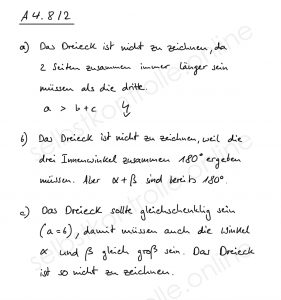 A 4.8/2
a) Das Dreieck ist nicht zu zeichnen, da
2 Seiten zusammen immer länger sein
müssen als die dritte.
a > b+c ↯
b) Das Dreieck ist nicht zu zeichnen, weil die
drei Innenwinkel zusammen 180° ergeben
müssen. Aber α+β sind bereits 180°.
c) Das Dreieck sollte gleichschenklig sein
(a=b), damit müssen auch die Winkel
α und β gleich groß sein. Das Dreieck
ist so nicht zu zeichnen.
selbstkontrolle.online
selbstkontrolle.online